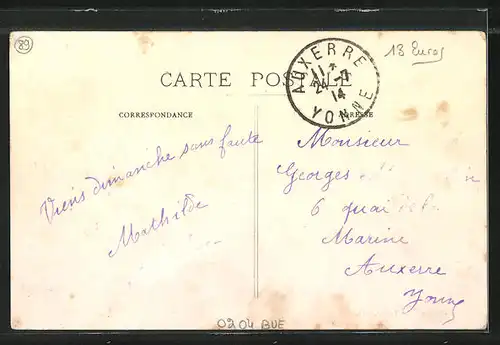 89
13 Euros
CARTE POSTALE
AUXERRE
11 *
24 -7
14
YONNE
CORRESPONDANCE
ADRESSE
Viens dimanche sans faute
Mathilde
Monsieur
Georges
6 quai de la
Marine
Auxerre
Yonne
0204 BUE